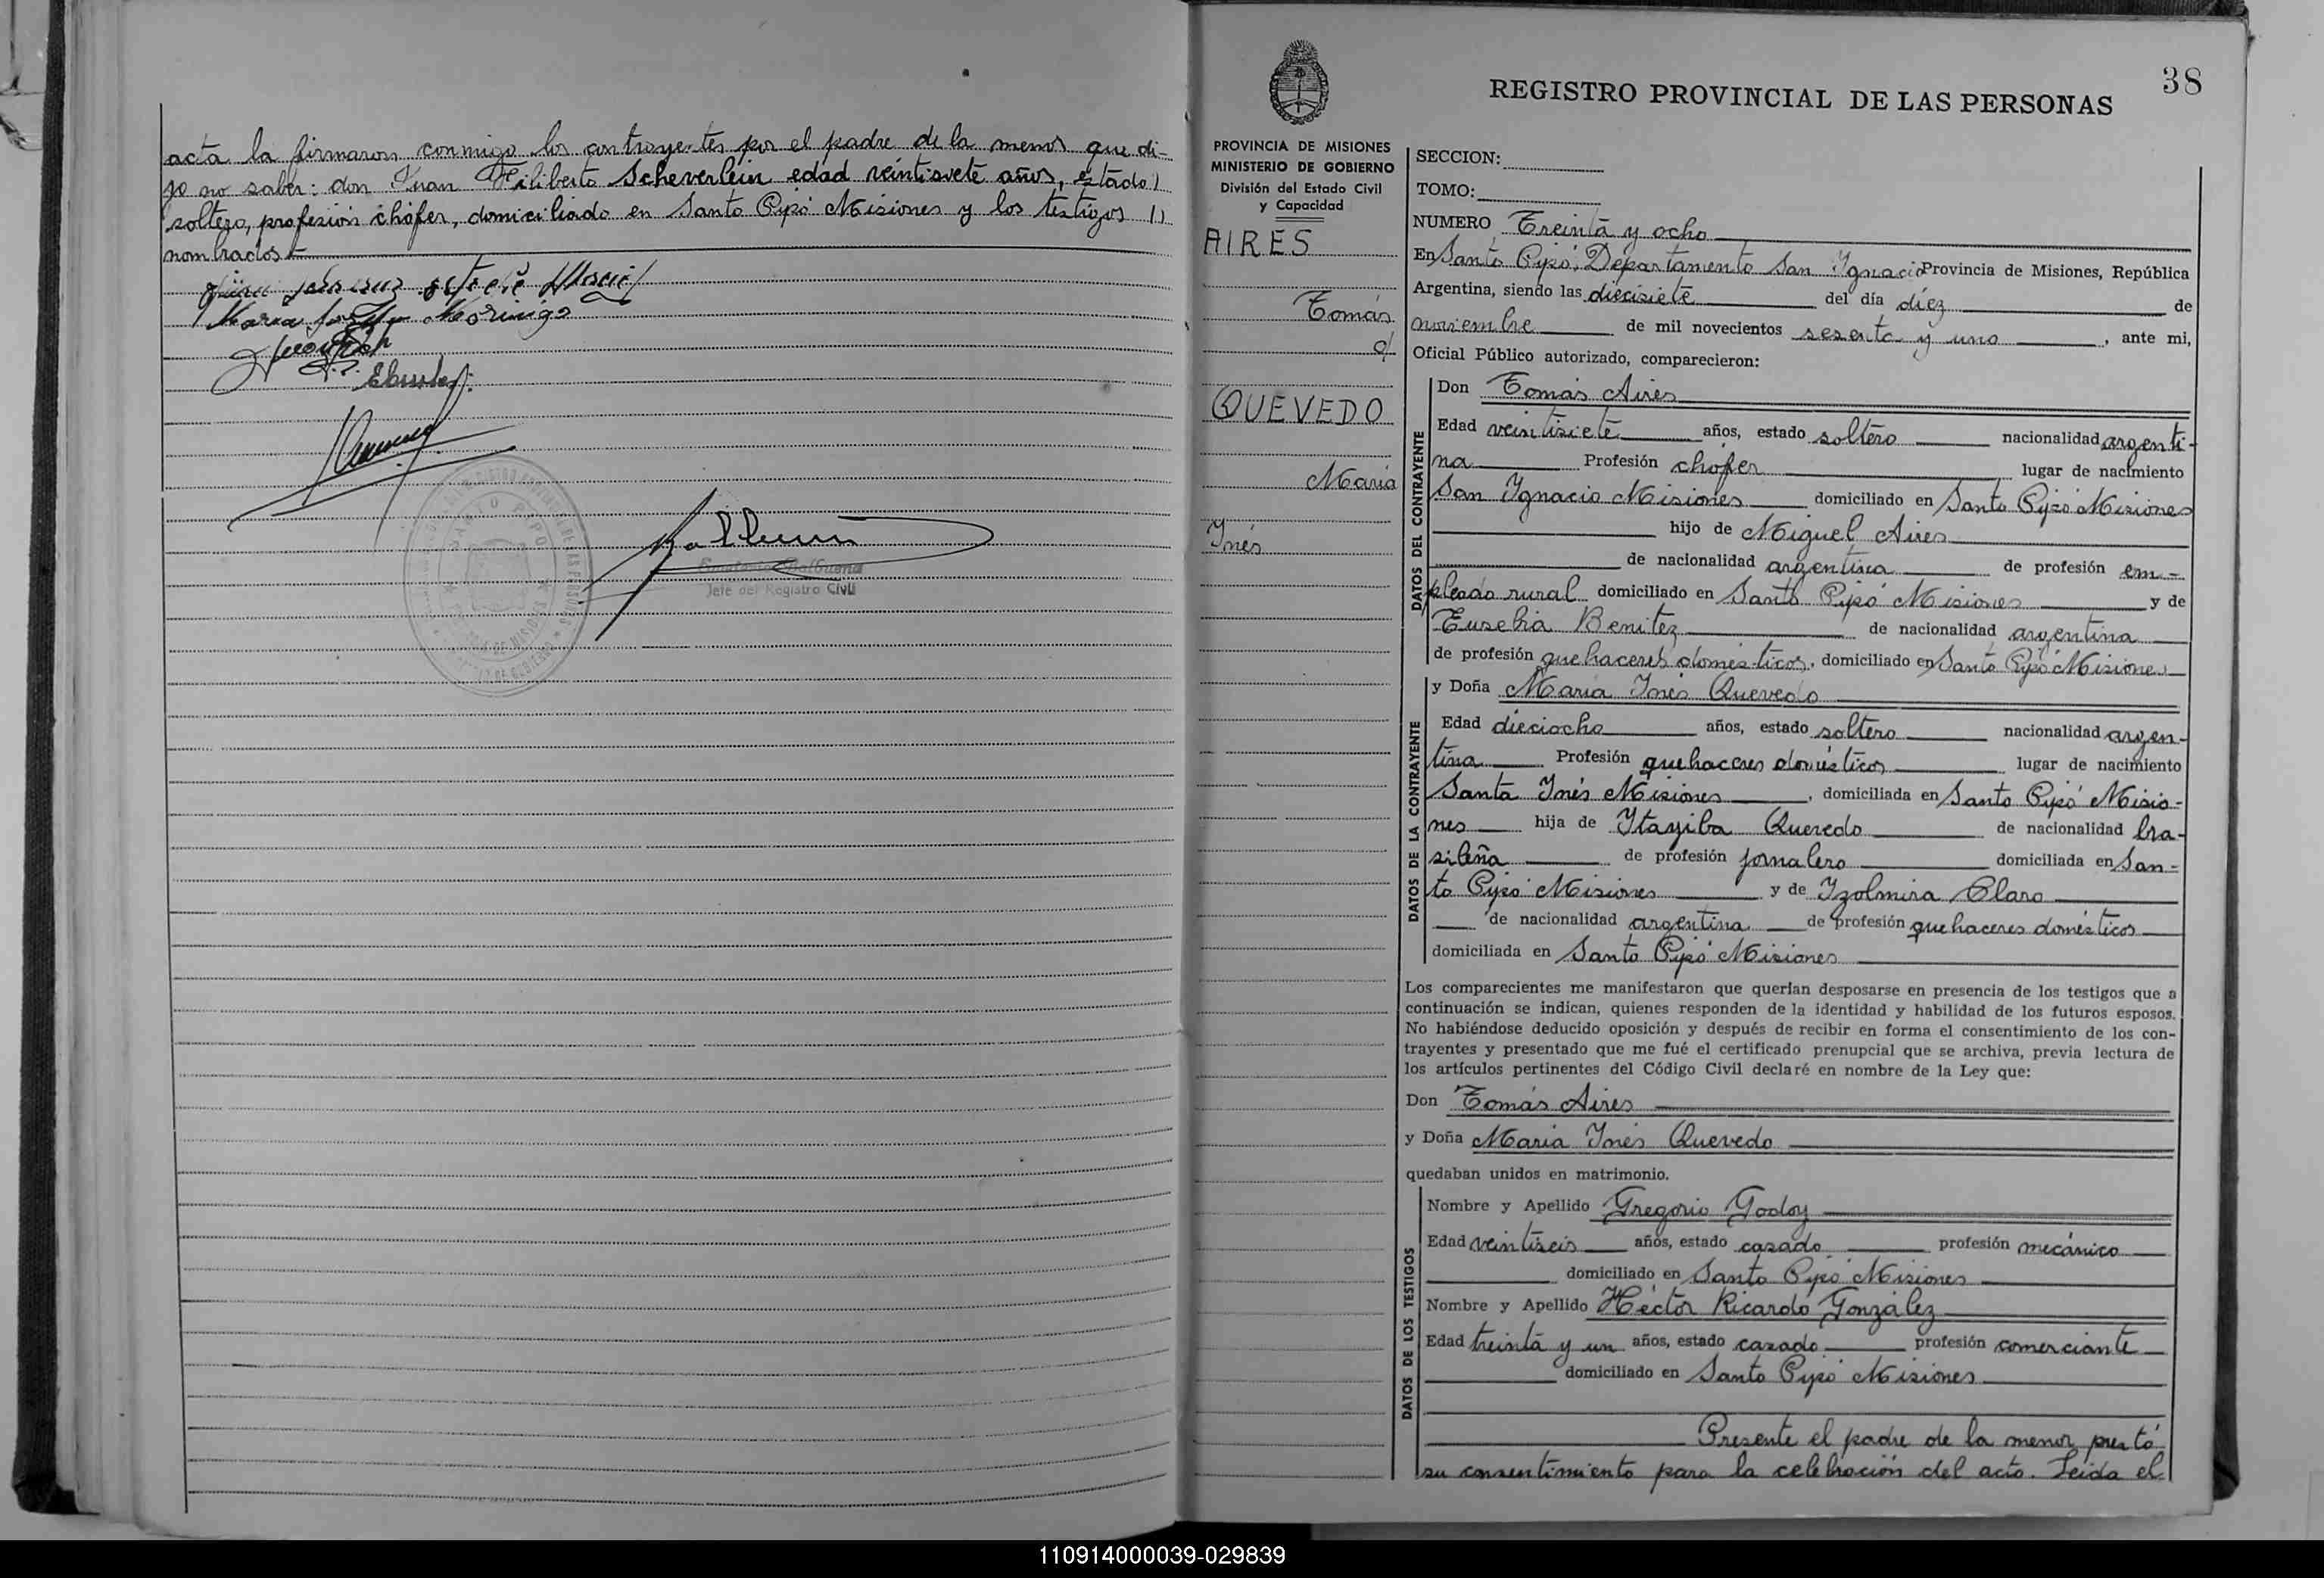 acta la firmaron conmigo los contrayentes por el padre de la menor que di-
jo no saber: don Juan Filiberto Scheverlein edad veintisiete años, estado
soltero, profesión chófer, domiciliado en Santo Pipó Misiones y los testigos
nombrados
María Morinigo
SANTO PIPO
Balbuena
Jefe del Registro Civil
38
REGISTRO PROVINCIAL DE LAS PERSONAS
PROVINCIA DE MISIONES
MINISTERIO DE GOBIERNO
División del Estado Civil
y Capacidad
AIRES
Tomás
c/
QUEVEDO
María
Inés
SECCION:
TOMO:
NUMERO Treinta y ocho
En Santo Pipó, Departamento San Ignacio Provincia de Misiones, República
Argentina, siendo las diecisiete del día diez de
noviembre de mil novecientos sesenta y uno, ante mi,
Oficial Público autorizado, comparecieron:
DATOS DEL CONTRAYENTE
Don Tomás Aires
Edad veintisiete años, estado soltero nacionalidad argenti-
na Profesión chófer lugar de nacimiento
San Ignacio Misiones domiciliado en Santo Pipó Misiones
hijo de Miguel Aires
de nacionalidad argentina de profesión em-
pleado rural domiciliado en Santo Pipó Misiones y de
Eusebia Benitez de nacionalidad argentina
de profesión quehaceres domésticos, domiciliado en Santo Pipó Misiones
DATOS DE LA CONTRAYENTE
y Doña María Inés Quevedo
Edad dieciocho años, estado soltero nacionalidad argen-
tina Profesión quehaceres domésticos lugar de nacimiento
Santa Inés Misiones, domiciliada en Santo Pipó Misio-
nes hija de Itagiba Quevedo de nacionalidad bra-
sileña de profesión jornalero domiciliada en San-
to Pipó Misiones y de Izolmira Claro
de nacionalidad argentina de profesión quehaceres domésticos
domiciliada en Santo Pipó Misiones
Los comparecientes me manifestaron que querían desposarse en presencia de los testigos que a
continuación se indican, quienes responden de la identidad y habilidad de los futuros esposos.
No habiéndose deducido oposición y después de recibir en forma el consentimiento de los con-
trayentes y presentado que me fué el certificado prenupcial que se archiva, previa lectura de
los artículos pertinentes del Código Civil declaré en nombre de la Ley que:
Don Tomás Aires
y Doña María Inés Quevedo
quedaban unidos en matrimonio.
DATOS DE LOS TESTIGOS
Nombre y Apellido Gregorio Godoy
Edad veintiseis años, estado casado profesión mecánico
domiciliado en Santo Pipó Misiones
Nombre y Apellido Héctor Ricardo González
Edad treinta y un años, estado casado profesión comerciante
domiciliado en Santo Pipó Misiones
Presente el padre de la menor prestó
su consentimiento para la celebración del acto. Leida el
110914000039-029839